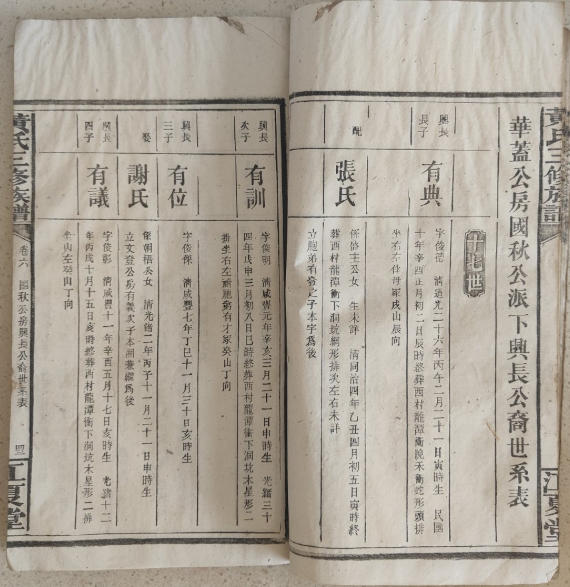 黃氏三修族譜
江夏堂
華蓋公房國秋公派下興長公裔世系表
十七世
興長
長子
有典
字俊傑 清道光二十六年丙午二月二十一日寅時生 民國
十年辛酉正月初二日辰時終葬西村龍潭衝晚禾衝蛇形頭排
坐右左仕母塚戌山辰向
配
張氏
係 主公女 生未詳 清同治四年乙丑四月初五日寅時終
葬西村龍潭衝下洞坑網形排次左右未詳
立胞弟有 之子本字爲後
興長
次子
有訓
字俊明 清咸豐元年辛亥三月二十一日申時生 光緒三十
四年戊申三月初八日巳時終葬西村龍潭衝下洞坑木星形二
排坐右左 胞 有才塚癸山丁向
興長
三子
有位
字俊保 清咸豐七年丁巳十一月三十日亥時生
娶
謝氏
係朝梧公女 清光緒二年丙子十一月二十一日申時生
立文登公房有義次子本洞兼繼爲後
興長
四子
有議
字俊彰 清咸豐十一年辛酉五月十七日亥時生 光緒十二
年丙戌十月十五日亥時終葬西村龍潭衝下洞坑木星形二排
坐山左癸山丁向
黃氏三修族譜
卷六 國秋公房興長公裔世系表
四
江夏堂